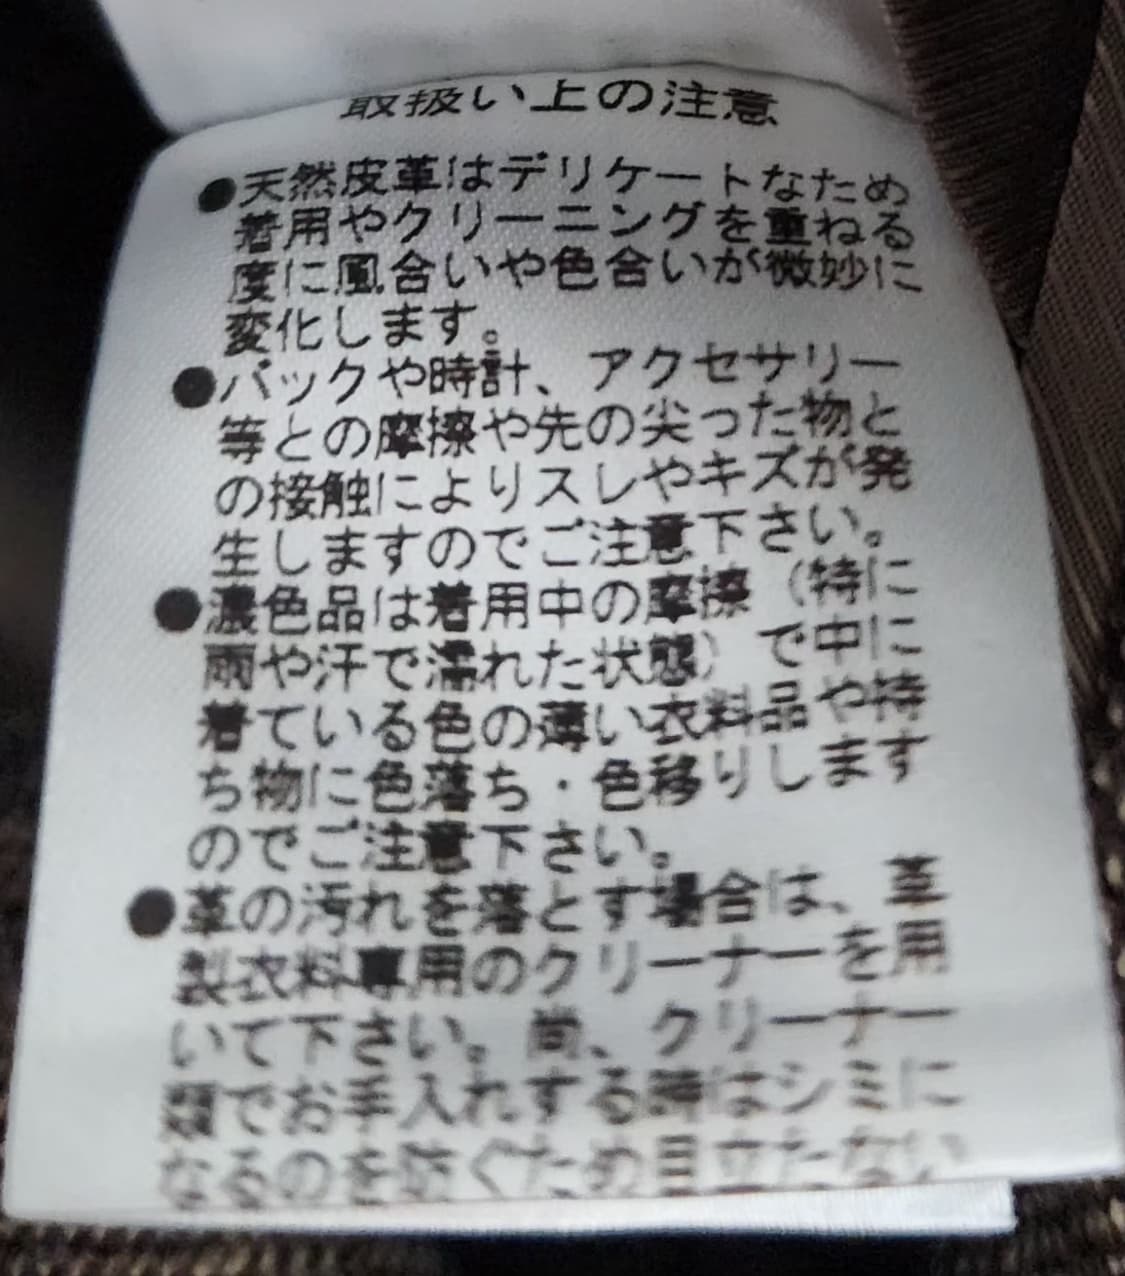 取扱い上の注意
●天然皮革はデリケートなため
着用やクリーニングを重ねる
度に風合いや色合いが微妙に
変化します。
●バックや時計、アクセサリー
等との摩擦や先の尖った物と
の接触によりスレやキズが発
生しますのでご注意下さい。
●濃色品は着用中の摩擦（特に
雨や汗で濡れた状態）で中に
着ている色の薄い衣料品や持
ち物に色落ち・色移りします
のでご注意下さい。
●革の汚れを落とす場合は、革
製衣料専用のクリーナーを用
いて下さい。尚、クリーナー
類でお手入れする時はシミに
なるのを防ぐため目立たない